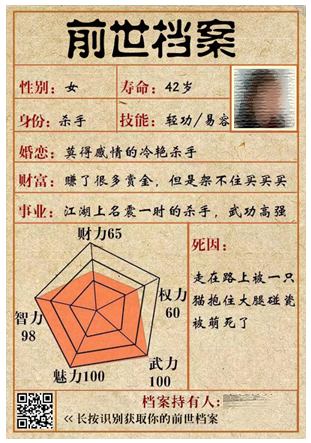 前世档案
性别：女
寿命：42岁
身份：杀手
技能：轻功/易容
婚恋：莫得感情的冷艳杀手
财富：赚了很多赏金，但是架不住买买买
事业：江湖上名震一时的杀手，武功高强
财力65
权力
60
武力
100
魅力100
智力
98
死因：
走在路上被一只
猫抱住大腿碰瓷
被萌死了
档案持有人：
<<长按识别获取你的前世档案